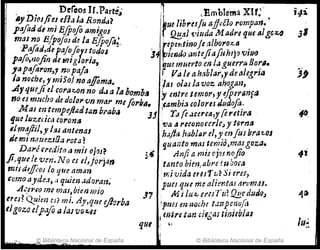 Deseos II. Parte,
ay Dios si es esta la Ronda?
pasad de mi Esposo amigos
mas no Esposos de la Esposa,
Pasad, de paso soys todos
paso, no sin de mi gloria,
ya pasaron, y no pasa
la noche, y mi Sol no assoma.
Ay que si el coraçon no da a la bomba
no es mucho de dolor vn mar me sorba.
Mas en tempestad tan braba
que luz cica corona
el mastil, y las antenas
de mi nauezilla rota?
Daré credito a mis ojos?
si, que le ven. No es el, son
mis desseos lo que aman
como aydes, a quien adoran.
Acerco me mas, bien mio
eres? Quien es? mi. Ay, que estorba
el gozo el paso a las vozes
que
34
35
36
37
© Biblioteca Nacional de España
Emblema XII.
142
que libres su aflicto rompan.
Qual viuda Madre que al gozo
repentino se alboroza
viendo ante si a su hijo viuo
que muerto en la guerra llora.
Va le a hablar, y de alegria
las olas la voz ahogan,
y entre temor, y esperança
cambia colores dudosa.
Ya se acerca, y se retira
va a reconocerle, y torna
hasta hablar el, y en sus braços
quanto mas temió, mas goza.
Ansi a mis ojos no fio
tanto bien, abre tu boca
mi vida eres Tu? Si eres,
pues que me alientas aromas.
Mi luz eres Tu? Que dudo,
pues en noche tan penosa
entre tan ciegas tinieblas
lu-
39
40
41
42
© Biblioteca Nacional de España